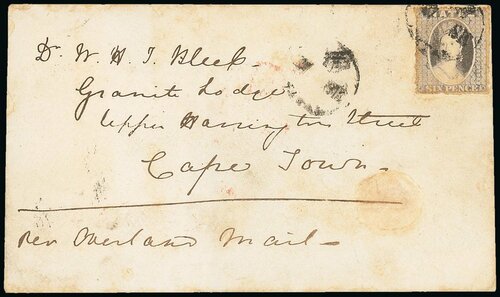 Dr. W. H. I. Bleek.
Granite Lodge
Upper Harrington Street
Cape Town.
per Overland Mail
SIX PENCE